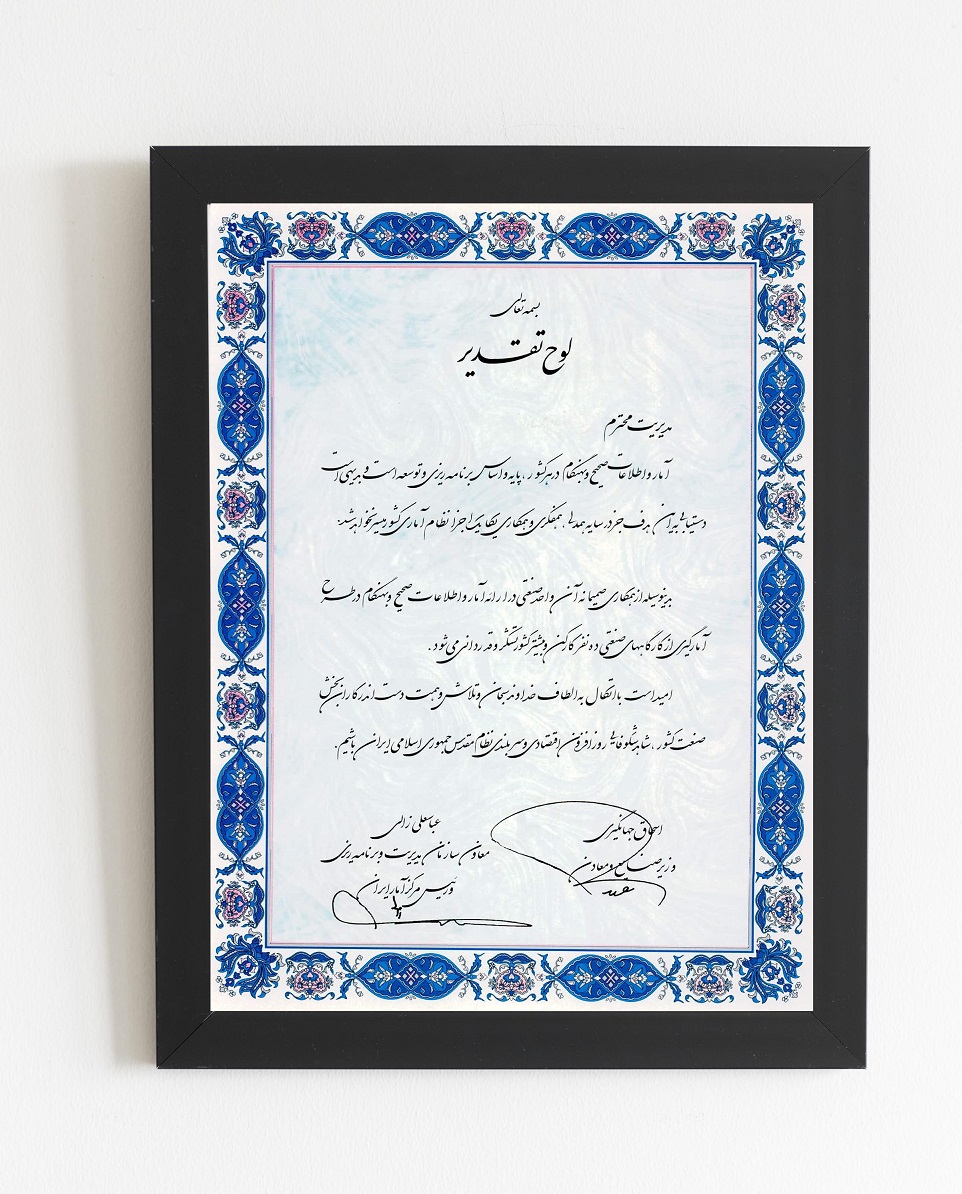 بسمه تعالی
لوح تقدیر
مدیریت محترم
آمار و اطلاعات صحیح و بهنگام در هر کشور، پایه و اساس برنامه ریزی و توسعه است و بدیهی است
دستیابی به این هدف جز در سایه همدلی، همفکری و همکاری یکایک اجزا نظام آماری کشور میسر نخواهد شد.
بدینوسیله از همکاری صمیمانه آن واحد صنعتی در ارائه آمار و اطلاعات صحیح و بهنگام در طرح
آمارگیری از کارگاههای صنعتی ده نفر کارکن و بیشتر کشور تشکر و قدردانی می شود.
امید است با اتکال به الطاف خداوند سبحان و تلاش و همت دست اندرکاران بخش
صنعت کشور، شاهد شکوفایی روزافزون اقتصادی و سربلندی نظام مقدس جمهوری اسلامی ایران باشیم.
اسحاق جهانگیری
وزیر صنایع و معادن
عباسعلی زالی
معاون سازمان مدیریت و برنامه ریزی
و رئیس مرکز آمار ایران